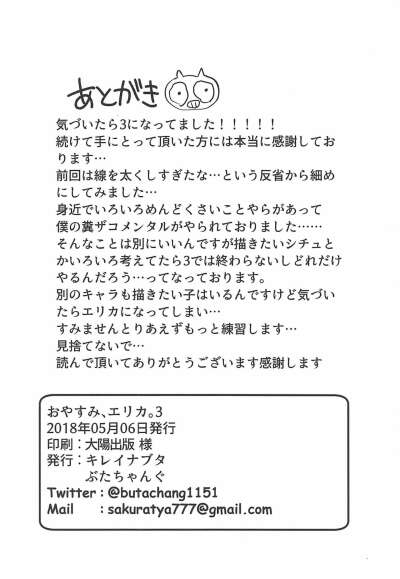 あとがき
気づいたら3になってました！！！！！
続けて手にとって頂いた方には本当に感謝してお
ります…
前回は線を太くしすぎたな…という反省から細め
にしてみました…
身近でいろいろめんどくさいことやらがあって
僕の糞ザコメンタルがやられておりました……
そんなことは別にいいんですが描きたいシチュと
かいろいろ考えてたら3では終わらないしどれだけ
やるんだろう…ってなっております。
別のキャラも描きたい子はいるんですけど気づい
たらエリカになってしまい…
すみませんとりあえずもっと練習します…
見捨てないで…
読んで頂いてありがとうございます感謝します
おやすみ、エリカ。3
2018年05月06日発行
印刷：大陽出版 様
発行：キレイナブタ
ぶたちゃんぐ
Twitter：@butachang1151
Mail　：sakuratya777@gmail.com